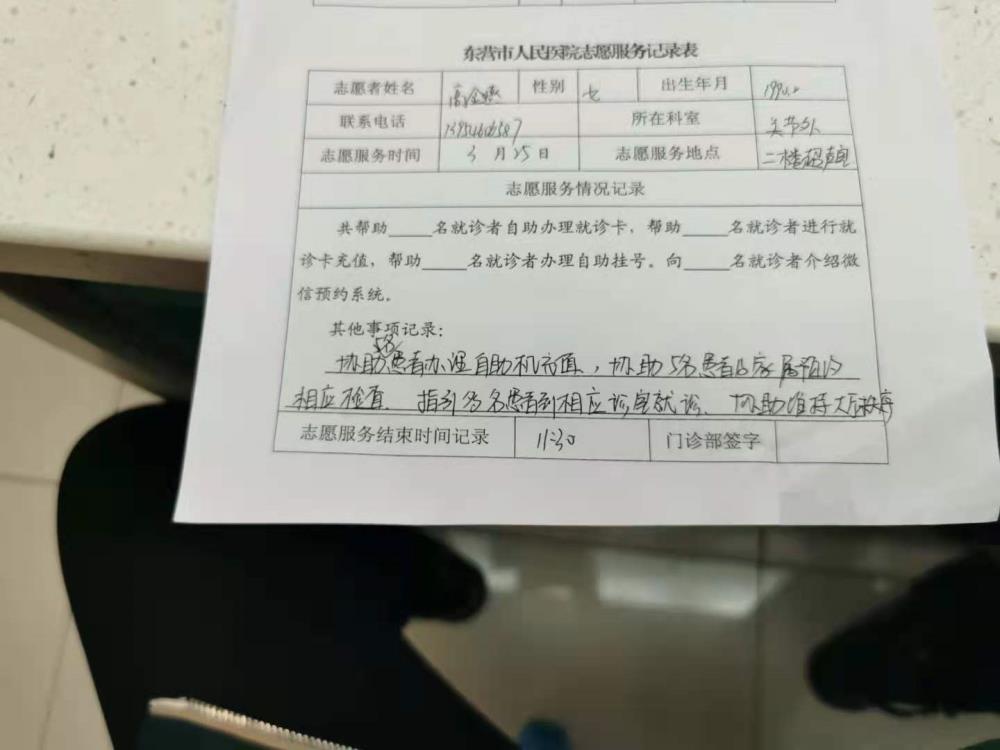 东营市人民医院志愿服务记录表
志愿者姓名 性别 女 出生年月
联系电话 所在科室 关节外
志愿服务时间 3月25日 志愿服务地点 二楼超声室
志愿服务情况记录
共帮助____名就诊者自助办理就诊卡，帮助____名就诊者进行就
诊卡充值，帮助____名就诊者办理自助挂号。向____名就诊者介绍微
信预约系统。
其他事项记录：
5名
协助患者办理自助机充值，协助5名患者及家属预约
相应检查 指引 名患者到相应诊室就诊、协助维持大厅秩序
志愿服务结束时间记录 11:30 门诊部签字